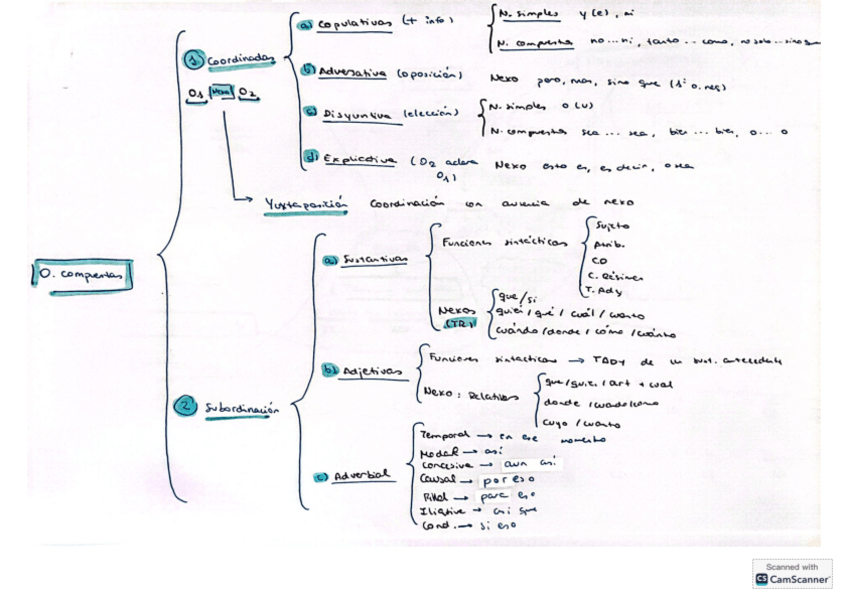 a) Copulativas (+ info)
N. simples y(e), ni
N. compuestos no...ni, tanto...como, no solo...sino que
1 Coordinadas
O1 Nexo O2
b) Adversativa (oposición) Nexo pero, mas, sino que (1ª o. neg)
c) Disyuntiva (elección)
N. simples o (u)
N. compuestos sea...sea, bien...bien, o...o
d) Explicativa (O2 aclara O1) Nexo esto es, es decir, o sea
Yuxtaposición Coordinación con ausencia de nexo
O. compuestas
2 Subordinación
a) Sustantivas
Funciones sintácticas
Sujeto
Atrib.
CD
C. Régimen
T. Ady
Nexos (TR)
que/si
quién/qué/cuál/cuanto
cuándo/donde/cómo/cuánto
b) Adjetivas
Funciones sintácticas → TAdy de un sust. antecedente
Nexo: Relativos
que/quien/art + cual
donde/cuando/como
cuyo/cuanto
c) Adverbial
Temporal → en ese momento
Modal → así
Concesiva → aun así
Causal → por eso
Final → para eso
Ilativa → así que
Cond. → si eso
Scanned with
CS CamScanner